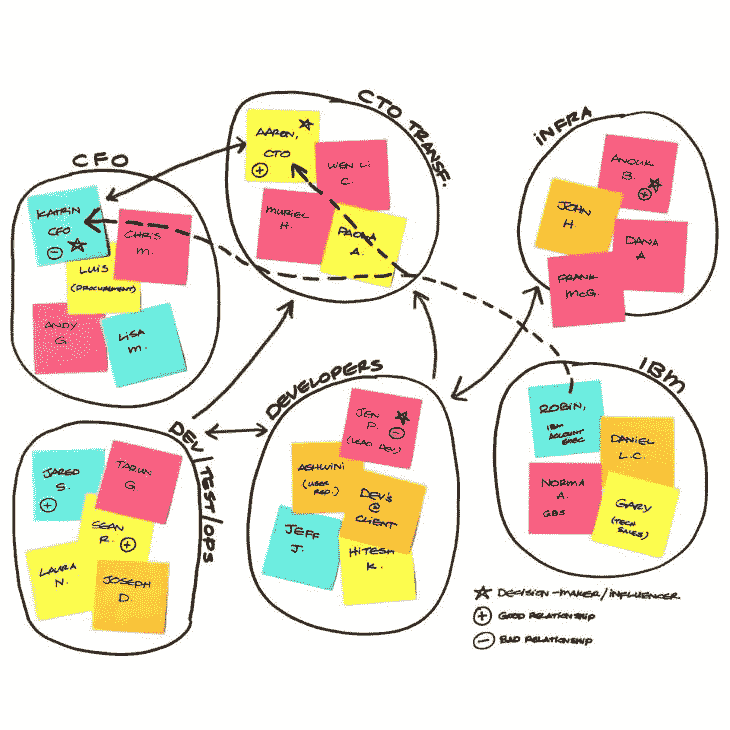 CFO
KATRIN
CFO
CHRIS
M.
LUIS
(PROCUREMENT)
ANDY
G.
LISA
M.
CTO TRANSF.
AARON,
CTO
WEN LI
C.
MURIEL
H.
PAOLA
A.
INFRA
ANOUK
B.
JOHN
H.
DANA
A
FRANK
McG.
DEV/TEST/OPS
JARED
S.
TARUN
G
SEAN
R.
LAURA
N.
JOSEPH
D.
DEVELOPERS
JEN
P.
(LEAD DEV)
ASHWINI
(USER
REP.)
DEV'S
@
CLIENT
JEFF
J.
HITESH
K.
IBM
ROBIN,
IBM
ACCOUNT
EXEC
DANIEL
L.C.
NORMA
A.
GBS
GARY
(TECH
SALES)
DECISION-MAKER/INFLUENCER
GOOD RELATIONSHIP
BAD RELATIONSHIP